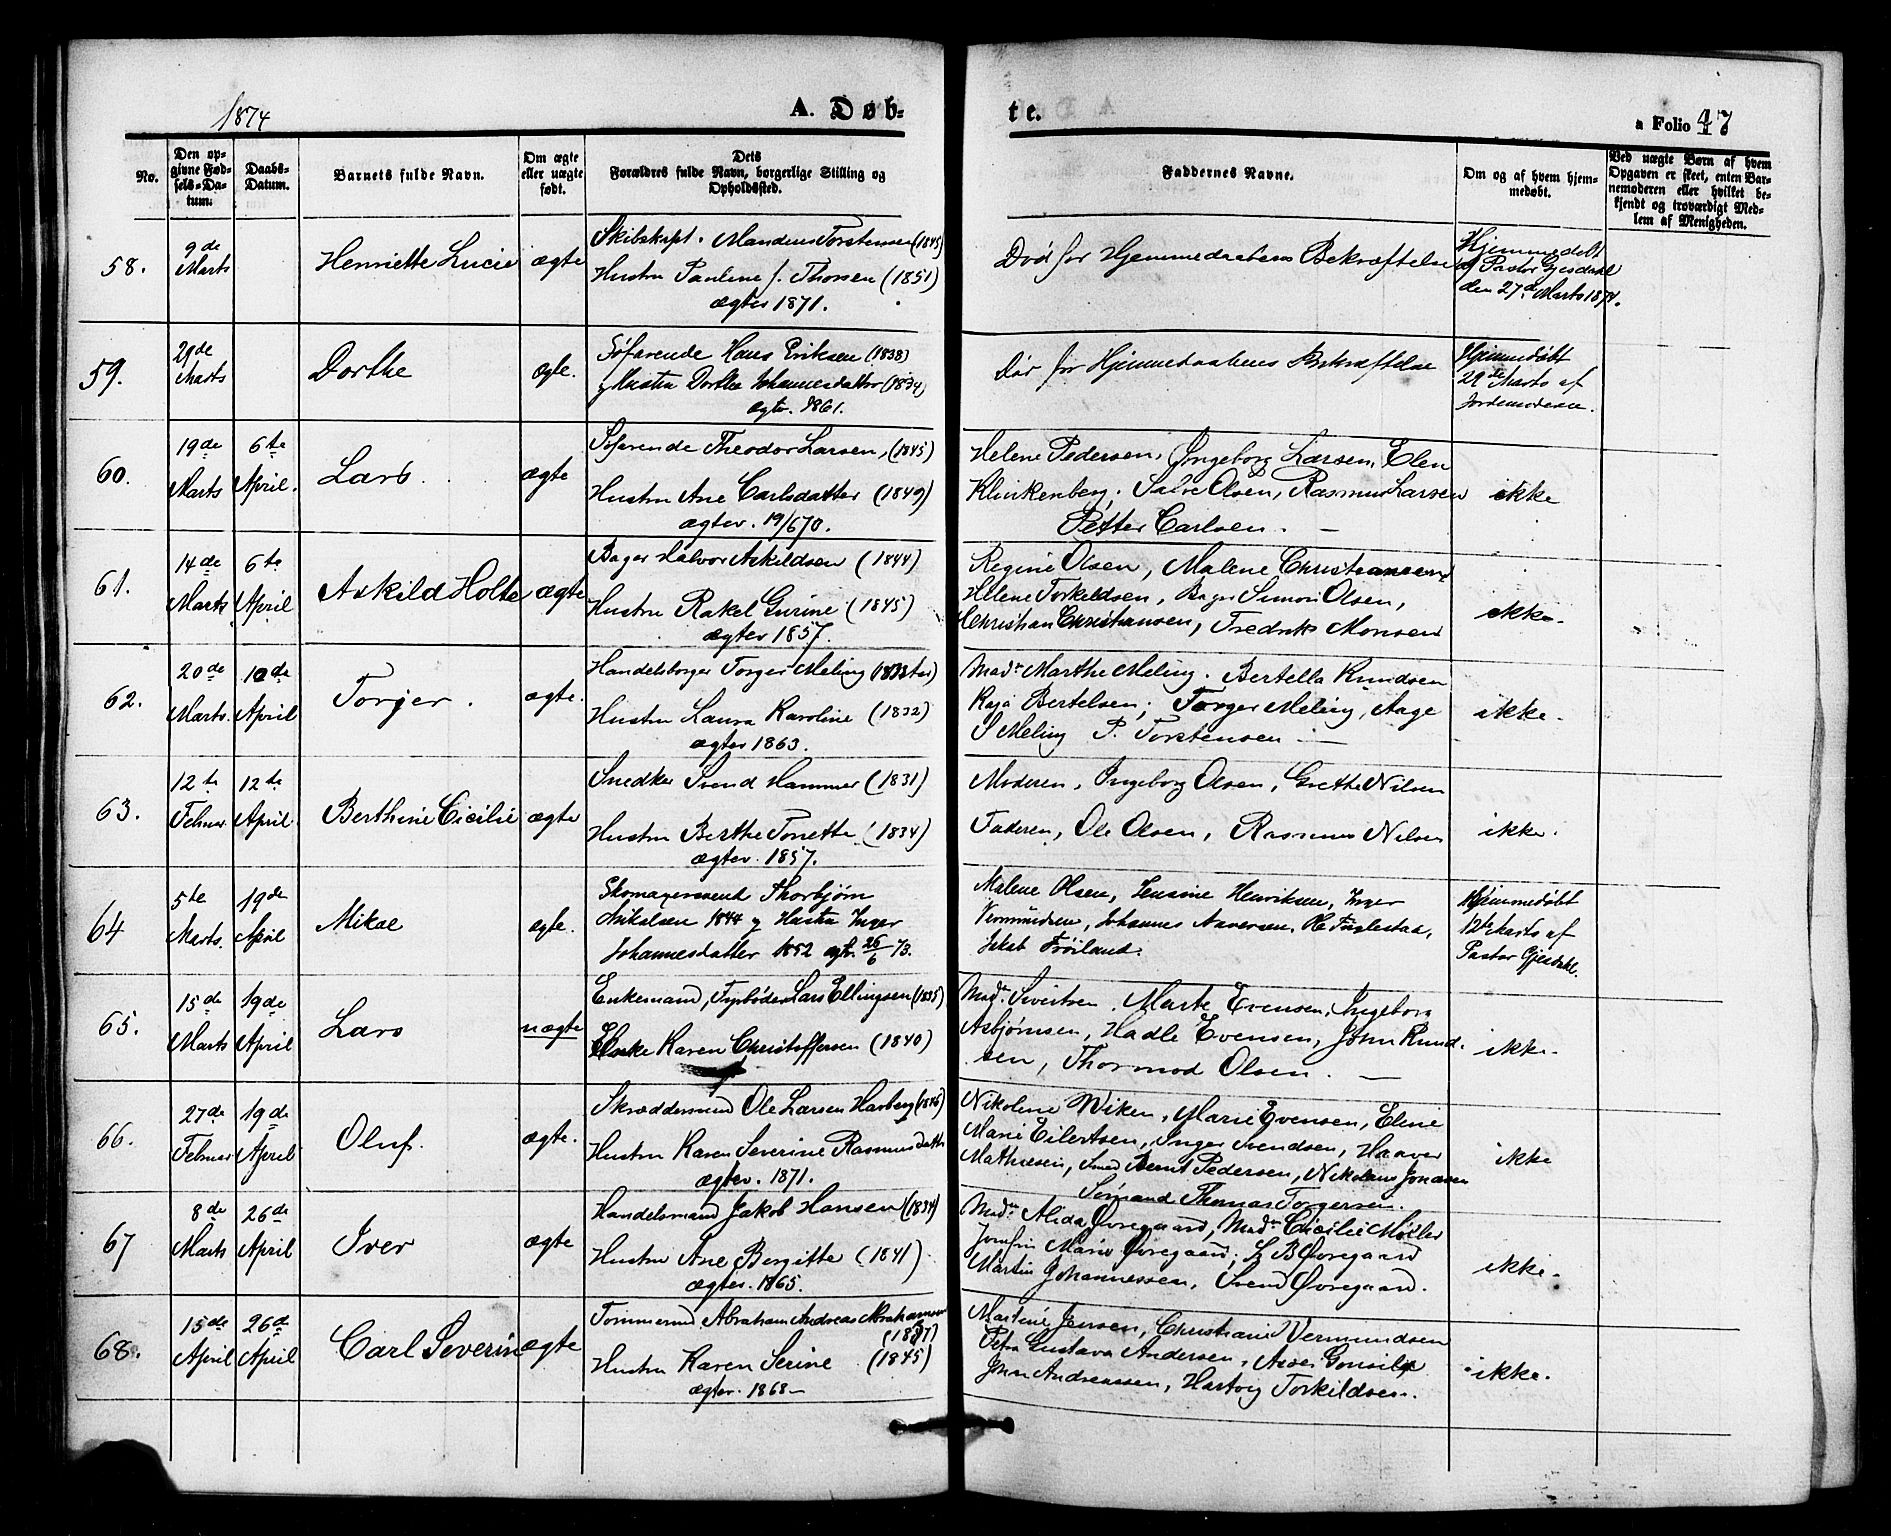 1874
A. Døb-
te.
a Folio 47
No.
Den op-
givne Fød-
sels-Da-
tum.
Daabs-
Datum.
Barnets fulde Navn.
Om ægte
eller uægte
født.
Dets
Forældres fulde Navn, borgerlige Stilling og
Opholdssted.
Faddernes Navne.
Om og af hvem hjem-
medøbt.
Ved uægte Børn af hvem
Opgaven er skeet, enten Bar-
nemoderen eller hvilket be-
kjendt og troværdigt Med-
lem af Menigheden.
58.
9de
Marts
Henriette Lucie
ægte
Skibskapt. Mandius Torstensen (1845)
Hustru Pauline f. Thorsen (1851)
ægtev 1871.
Død før Hjemmedaabens Bekræftelse
Hjemmedøbt
af Pastor Gjesdahl
den 27de Marts 1874.
59.
29de
Marts
Dorthe
ægte.
Søfarende Hans Eriksen (1838)
og Hustru Dorthea Johannesdatter (1834)
ægtv. 1861.
Død før Hjemmedaabens Bekræftelse
Hjemmedøbt
29de Marts af
Jordemoderen.
60.
19de
Marts
6te
April.
Lars
ægte
Søfarende Theodor Larsen, (1845)
Hustru Ane Carlsdatter (1849)
ægtev. 19/6 70.
Helene Pedersen, Ingeborg Larsen, Elen
Klinkenberg. Salve Olsen, Rasmus Larsen
Petter Carlsen. —
ikke
61.
14de
Marts
6te
April
Askild Holte
ægte
Bager Halvor Askildsen (1844)
Hustru Rakel Gurine (1845)
ægtev 1857.
Regine Olsen, Malene Christiansen
Helene Torkildsen, Bager Simon Olsen,
Christian Christiansen, Fredrik Monsen
ikke.
62.
20de
Marts.
12de
April
Torger.
ægte.
Handelsborger Torger Meling
Hustru Laura Karoline (1832)
ægtev 1863.
Madm Marthe Meling. Bertella Knudsen
Kaja Bertelsen; Torger Meling, Aage
S Meling P. Torstensen —
ikke.
63.
12te
Februar
12te
April
Berthine Cicilie
ægte
Snedker Svend Hammer (1831)
Hustru Berthe Tonette (1834)
ægtev. 1857.
Moderen, Ingeborg Olsen, Grethe Nilsen
Faderen, Ole Olsen, Rasmus Nilsen
ikke.
64
5te
Marts.
19de
April
Mikal
ægte.
Skomagersvend Thorbjørn
Mikalsen 1844 og Hustru Inger
Johannesdatter 1852 ægtv. 26/6 73.
Malene Olsen, Severine Henriksen, Inger
Vermundsen, Johannes Aaversen, Fuglestad,
Jakob Frøiland.
Hjemmedøbt
12te Marts af
Pastor Gjesdahl.
65.
15de
Marts
19de
April
Lars
uægte
Enkemand, Fyrbøder Lars Ellingsen (1835)
Enke Karen Christoffersen (1840)
Madm. Sivertsen. Marte Evensen, Ingeborg
Asbjørnsen, Hadle Evensen, John Knud-
sen, Thormod Olsen. —
ikke.
66.
27de
Februar
19de
April
Oluf.
ægte.
Skræddersvend Ole Larsen Hasberg (1846)
Hustru Karen Severine Rasmusdatter
ægtev. 1871.
Nikolene Wiken, Marie Evensen, Eline
Marie Eilertsen, Inger Svendsen, Haaver
Mathiesen, Smed Bernt Pedersen, Nikolaus Jonassen
Sømand Thomas Torgersen.
ikke
67
8de
Marts
26de
April
Iver
ægte
Handelsmand Jakob Hansen (1834)
Hustru Ane Bergitte (1841)
ægtev. 1865.
Madm. Alida Øvregaard, Madm Cicilie Møller
Jomfru Marie Øvregaard, L B Øvregaard
Martin Johannessen, Svend Øvregaard.
ikke.
68.
15de
April
26de
April
Carl Severin
ægte
Tømmermd. Abraham Andreas Abrahamsen
(1837)
Hustru Karen Serine (1845)
ægtev. 1868—
Martine Jensen, Christiane Vermundsen
Petra Gustava Andersen, Asser Gonsild
John Andreassen, Hartvig Torkildsen.
ikke.